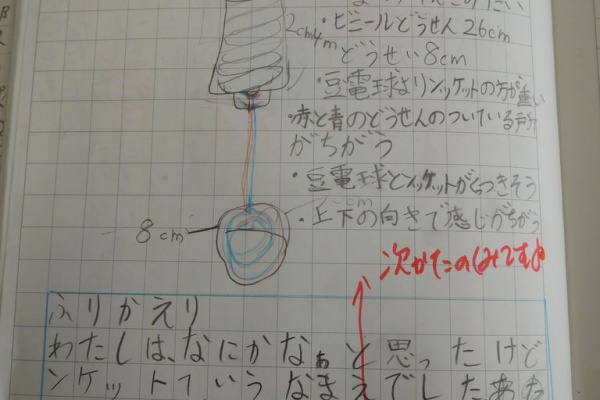 2cm4m
・ビニールどうせん26cm
どうせい8cm
・豆電球よりソケットの方が重い
・赤と青のどうせんのついている
がちがう
・豆電球とソケットがくっつきそう
8cm
・上下の向きで感じがちがう
次が
ふりかえり
わたしは、なにかなぁと思ったけど
ソケットていうなまえでした